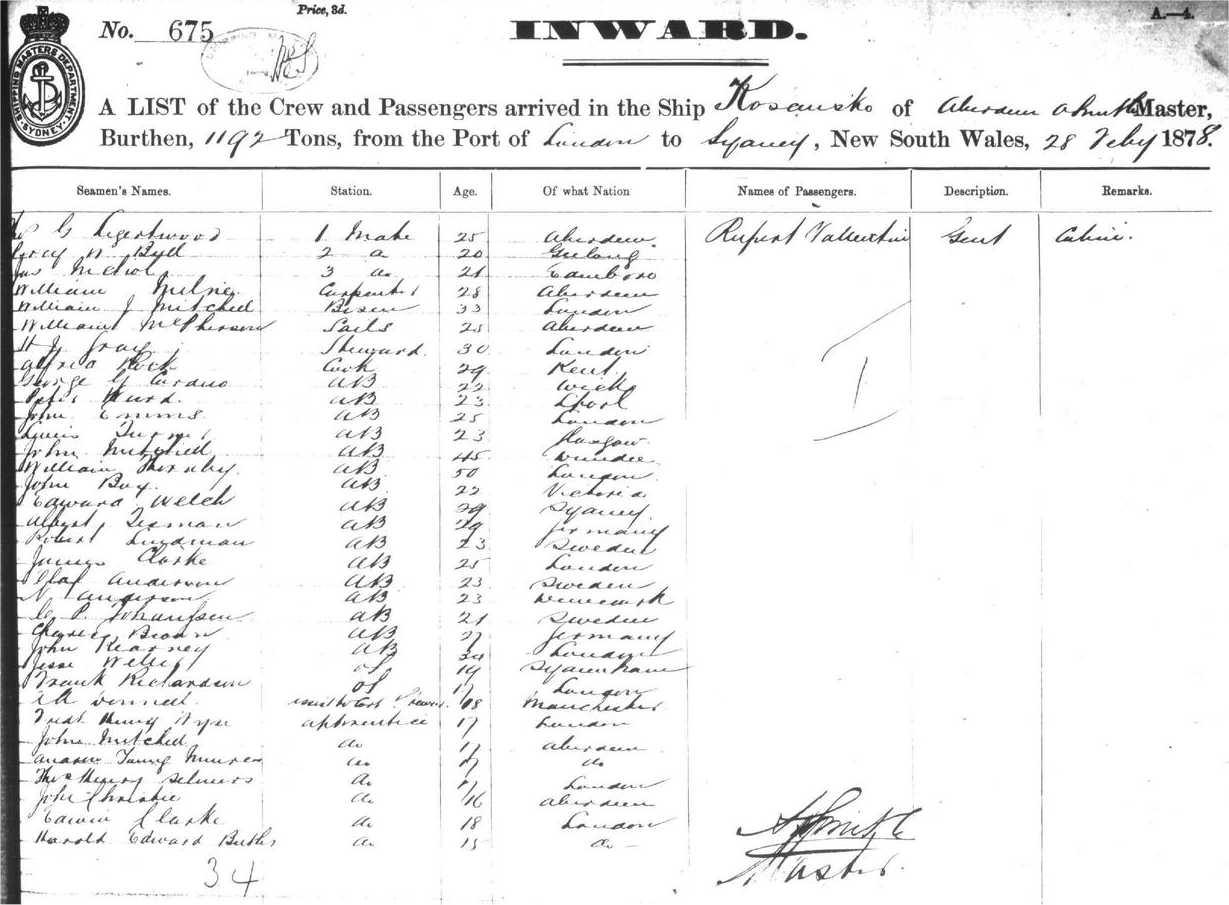 Price, 3d.
A.—4.
No. 675
INWARD.
SHIPPING MASTERS DEPARTMENT. SYDNEY.
A LIST of the Crew and Passengers arrived in the Ship Kosciusko of Aberdeen A Smith Master,
Burthen, 1192 Tons, from the Port of London to Sydney, New South Wales, 28 Feby 1878.
Seamen's Names. Station. Age. Of what Nation Names of Passengers. Description. Remarks.
G Ligertwood 1 Mate 25 Aberdeen Rupert Vallentin Gent Cabin.
Percy N. Bull 2 do 20 Geelong
Jas Nichol 3 do 21 Edinboro
William Milne Carpenter 28 Aberdeen
William J Mitchell Bosen 33 London
William McPherson Sails 25 Aberdeen
H J Gray Steward 30 London
Alfred Cook 29 Kent
George G AB 22 Wick
Peter Ward AB 23 Lpool
John Emms AB 25 London
Lewis Turner AB 23 Glasgow
John AB 45 Dundee
William AB 50 London
John Boy AB 22 Victoria
Edward Welch AB 29 Sydney
Albert AB 29 Germany
Robert AB 23 Sweden
James Clarke AB 25 London
Olaf Anderson AB 23 Sweden
N Anderson AB 23 Denmark
C P. Johanssen AB 21 Sweden
Charles Brown AB 27 Germany
John Kearney AB London
Jesse Wells OS 19 Sydenham
Frank Richardson OS 17 London
18 Manchester
Fredk Henry apprentice 17 London
John Mitchell do 17 Aberdeen
Andrew Young do 17 do
Thos Henry do 17 London
John Christie do 16 Aberdeen
Edwin Clarke do 18 London
Harold Edward Butler do 15 do
A Smith
Master.
34